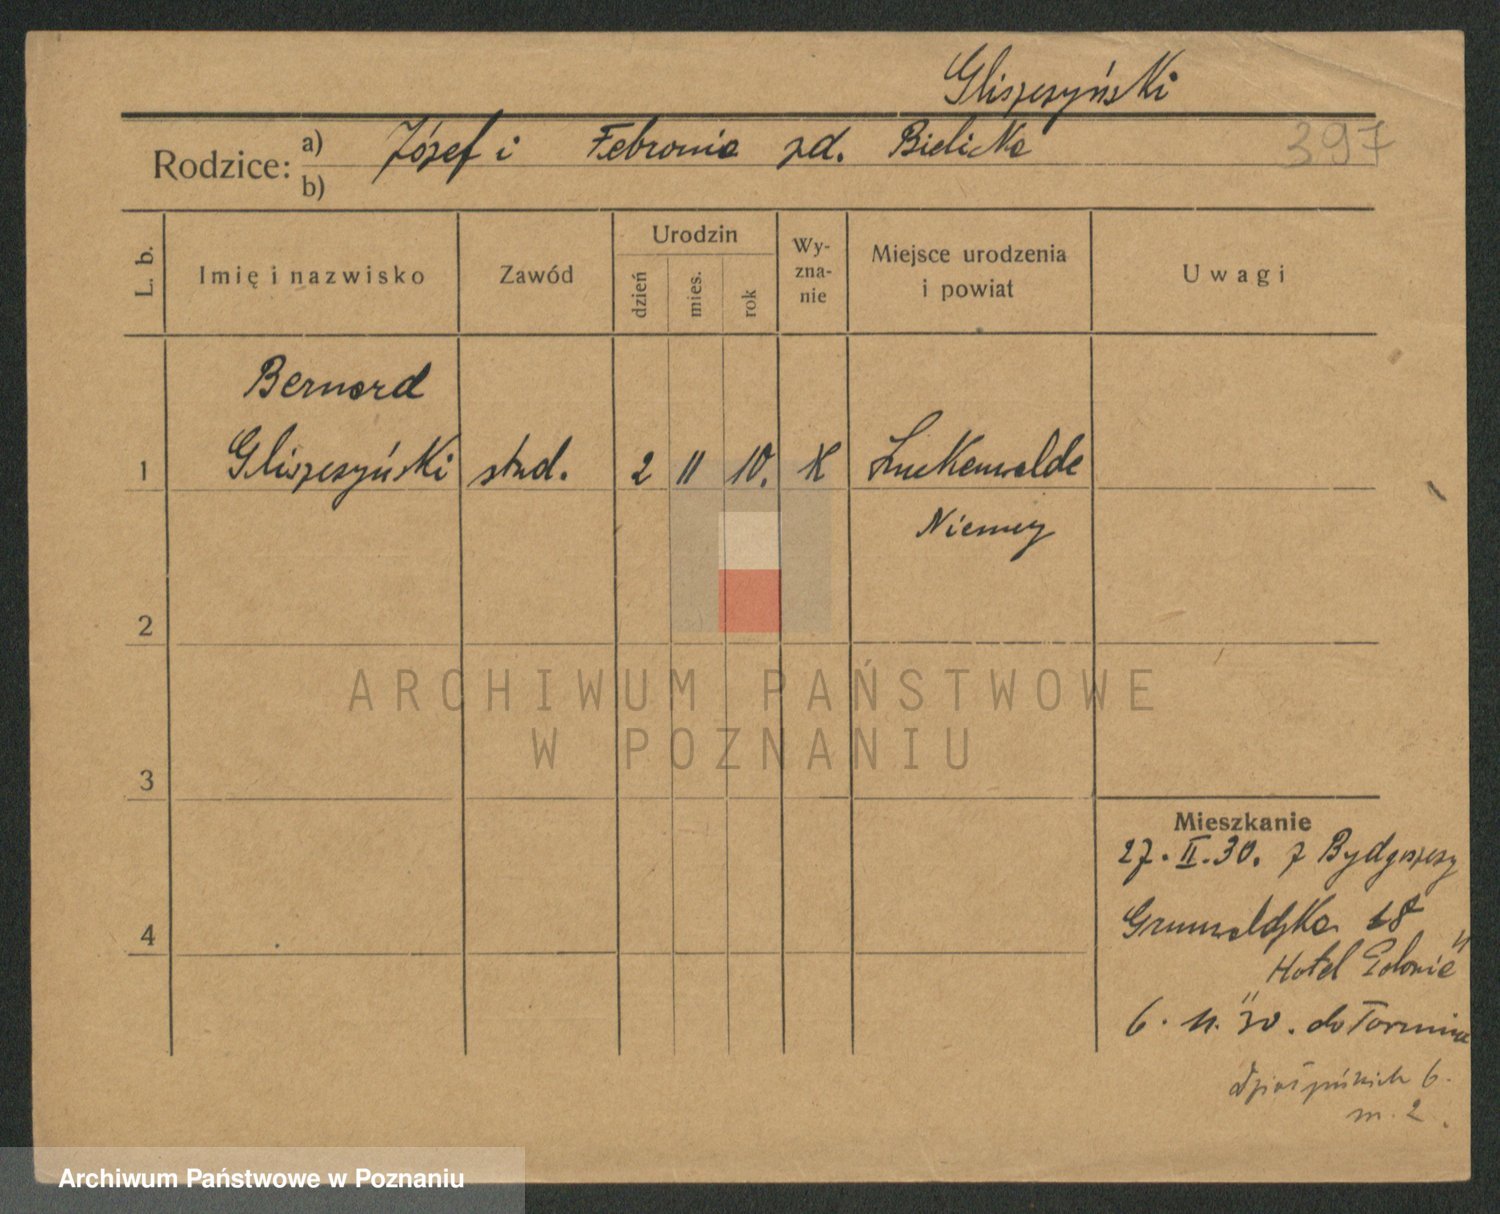 Gliszczyński
Rodzice: a) Józef i Febronia zd. Bielicka
397
b)
L. b.
Imię i nazwisko
Zawód
Urodzin
dzień
mies.
rok
Wy-
zna-
nie
Miejsce urodzenia
i powiat
Uwagi
Bernard
1 Gliszczyński stud. 2 11 10. K Luckenwalde
Niemcy
2
ARCHIWUM PAŃSTWOWE
W POZNANIU
3
Mieszkanie
27. II. 30. z Bydgoszczy
4
Grunwaldzka 18
Hotel Polonia
6. 11. 30. do Torunia
6.
m. 2.
Archiwum Państwowe w Poznaniu